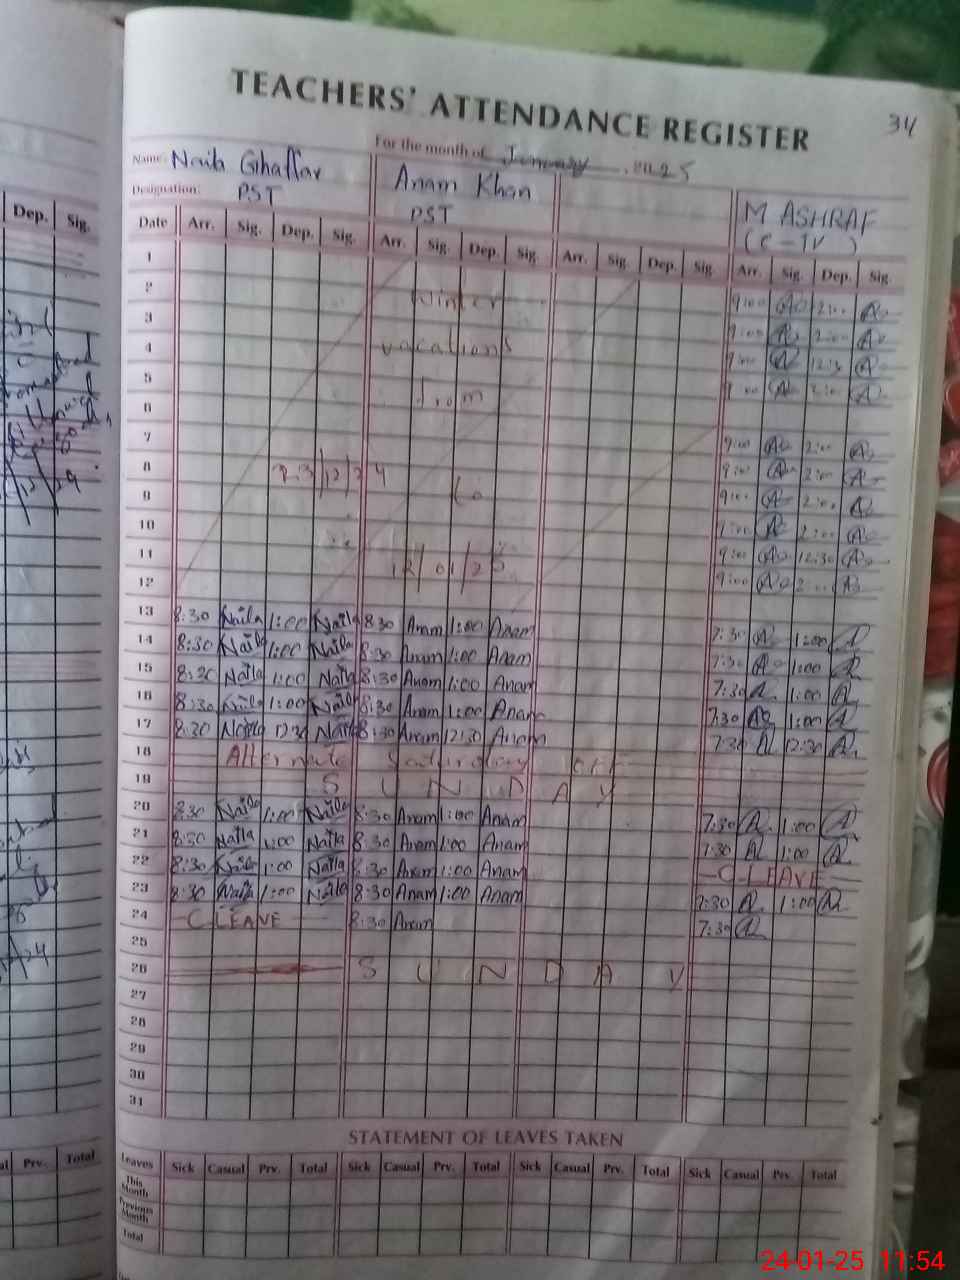 TEACHERS' ATTENDANCE REGISTER
34
For the month of January 2025
Name: Naila Ghaffar Anam Khan M ASHRAF
Designation: PST PST (C-IV)
Date Arr. Sig. Dep. Sig. Arr. Sig. Dep. Sig. Arr. Sig. Dep. Sig. Arr. Sig. Dep. Sig.
Dep. Sig.
1
2 Winter 9:00 2:00
3 9:00 2:00
4 vacations 9:00 12:30
5 9:00 2:00
6 from
7 9:00 2:00
8 23/12/24 9:00 2:00
9 to 9:00 2:00
10 9:00 2:00
11 12/01/25 9:00 12:30
12 9:00 2:00
13 8:30 Naila 1:00 Naila 8:30 Anam 1:00 Anam 7:30 1:00
14 8:30 Naila 1:00 Naila 8:30 Anam 1:00 Anam 7:30 1:00
15 8:30 Naila 1:00 Naila 8:30 Anam 1:00 Anam 7:30 1:00
16 8:30 Naila 1:00 Naila 8:30 Anam 1:00 Anam 7:30 1:00
17 8:30 Naila 12:30 Naila 8:30 Anam 12:30 Anam 7:30 12:30
18 Alternate Saturday off
19 SUNDAY
20 8:30 Naila 1:00 Naila 8:30 Anam 1:00 Anam 7:30 1:00
21 8:30 Naila 1:00 Naila 8:30 Anam 1:00 Anam 7:30 1:00
22 8:30 Naila 1:00 Naila 8:30 Anam 1:00 Anam C-LEAVE
23 8:30 Naila 1:00 Naila 8:30 Anam 1:00 Anam 7:30 1:00
24 C LEAVE 8:30 Anam 7:30
25
26 SUNDAY
27
28
29
30
31
STATEMENT OF LEAVES TAKEN
Leaves Sick Casual Prv. Total Sick Casual Prv. Total Sick Casual Prv. Total Sick Casual Prv. Total
Prv. Total
This Month
Previous Month
Total
24-01-25 11:54